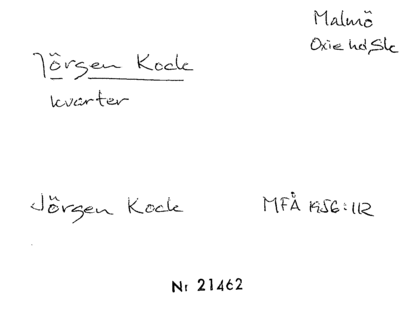 Malmö
Oxie hd, Sk
Jörgen Kock
kvarter
Jörgen Kock MFÅ 1956:112
Nr 21462